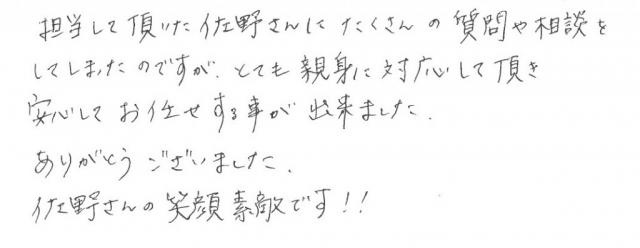 担当して頂いた佐野さんにたくさんの質問や相談を
してしまったのですが、とても親身に対応して頂き
安心してお任せする事が出来ました.
ありがとうございました.
佐野さんの笑顔素敵です!!